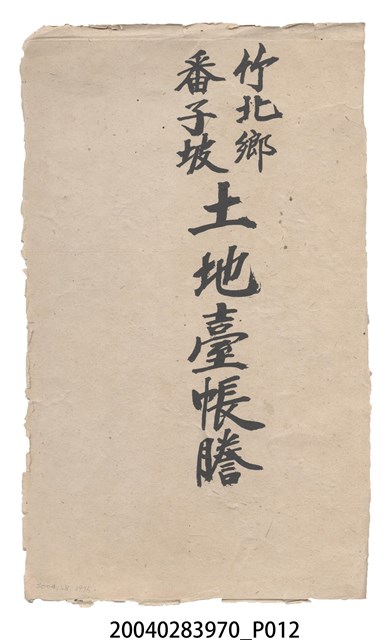 竹北鄉
番子坡
土地臺帳謄
20040283970_P012